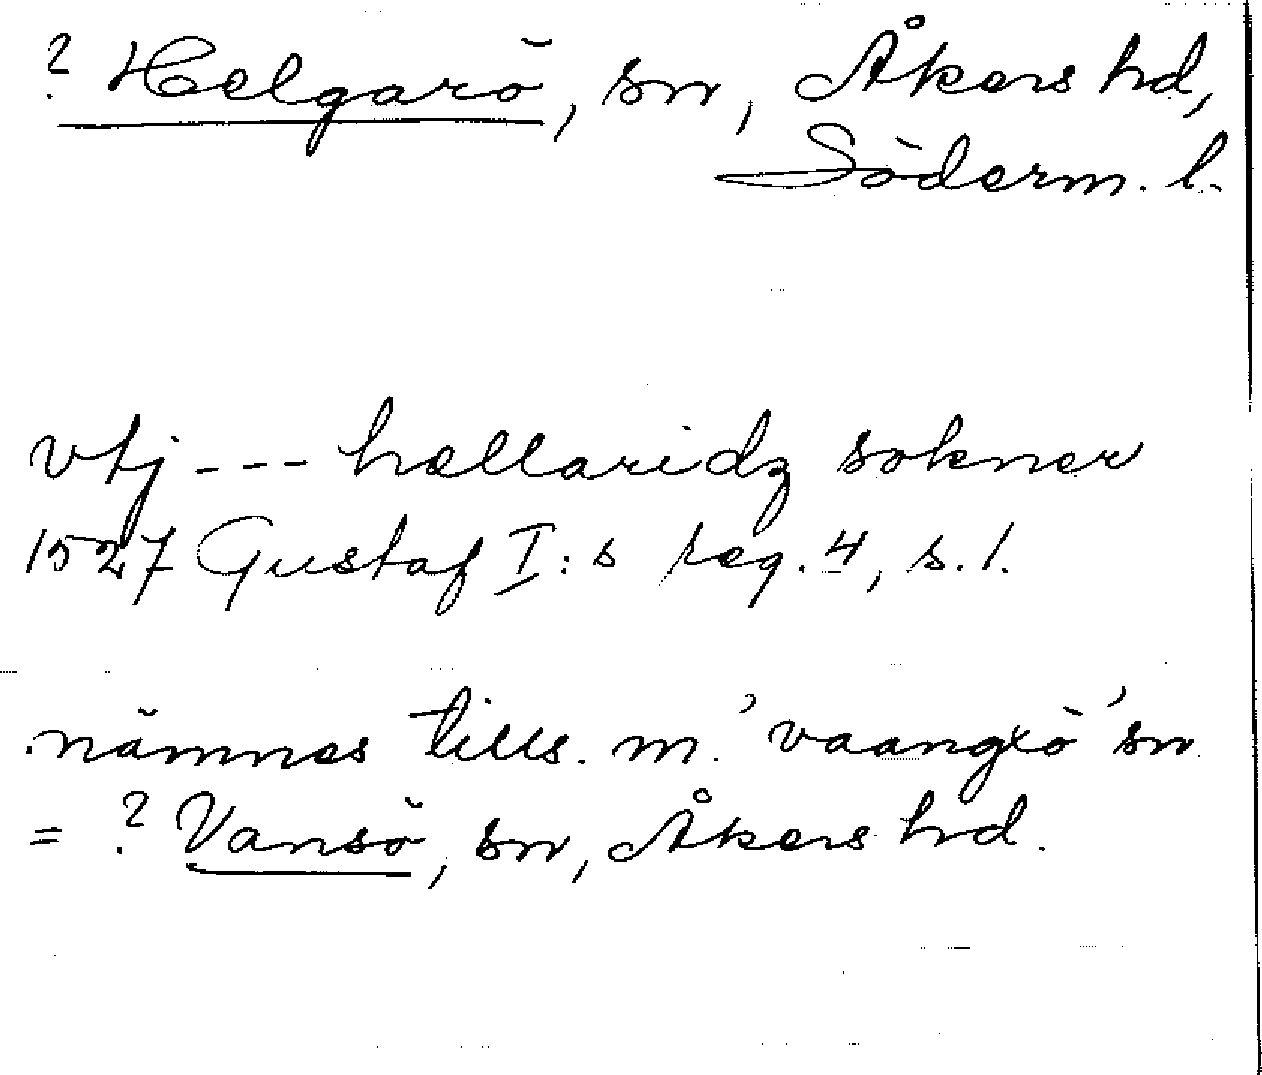 ? Helgarö, sn, Åkers hd,
Söderm. l.
vtj --- hællaridz sokner
1527 Gustaf I:s reg. 4, s. 1.
nämnes tills. m. 'vaangxö' sn
= ? Vansö, sn, Åkers hd.